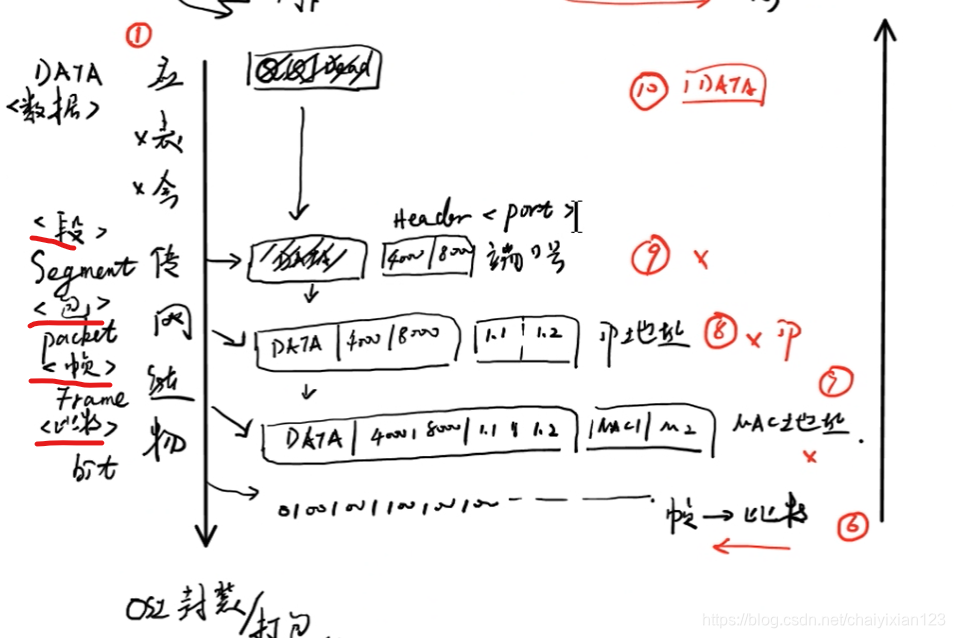 ①
DATA 应
<数据>
⑩ DATA
×表
×会
Header <port>
<段>
Segment 传
4000 8000 端口号
⑨ ×
<包>
packet 网
DATA 4000 8000 1.1 1.2 IP地址 ⑧ × IP
<帧>
Frame 链
⑦
DATA 4000 8000 1.1 1.2 MAC1 M2 MAC地址.
×
<比特> 物
bit
帧→比特 ⑥
OSI 封装/打包
https://blog.csdn.net/chaiyixian123